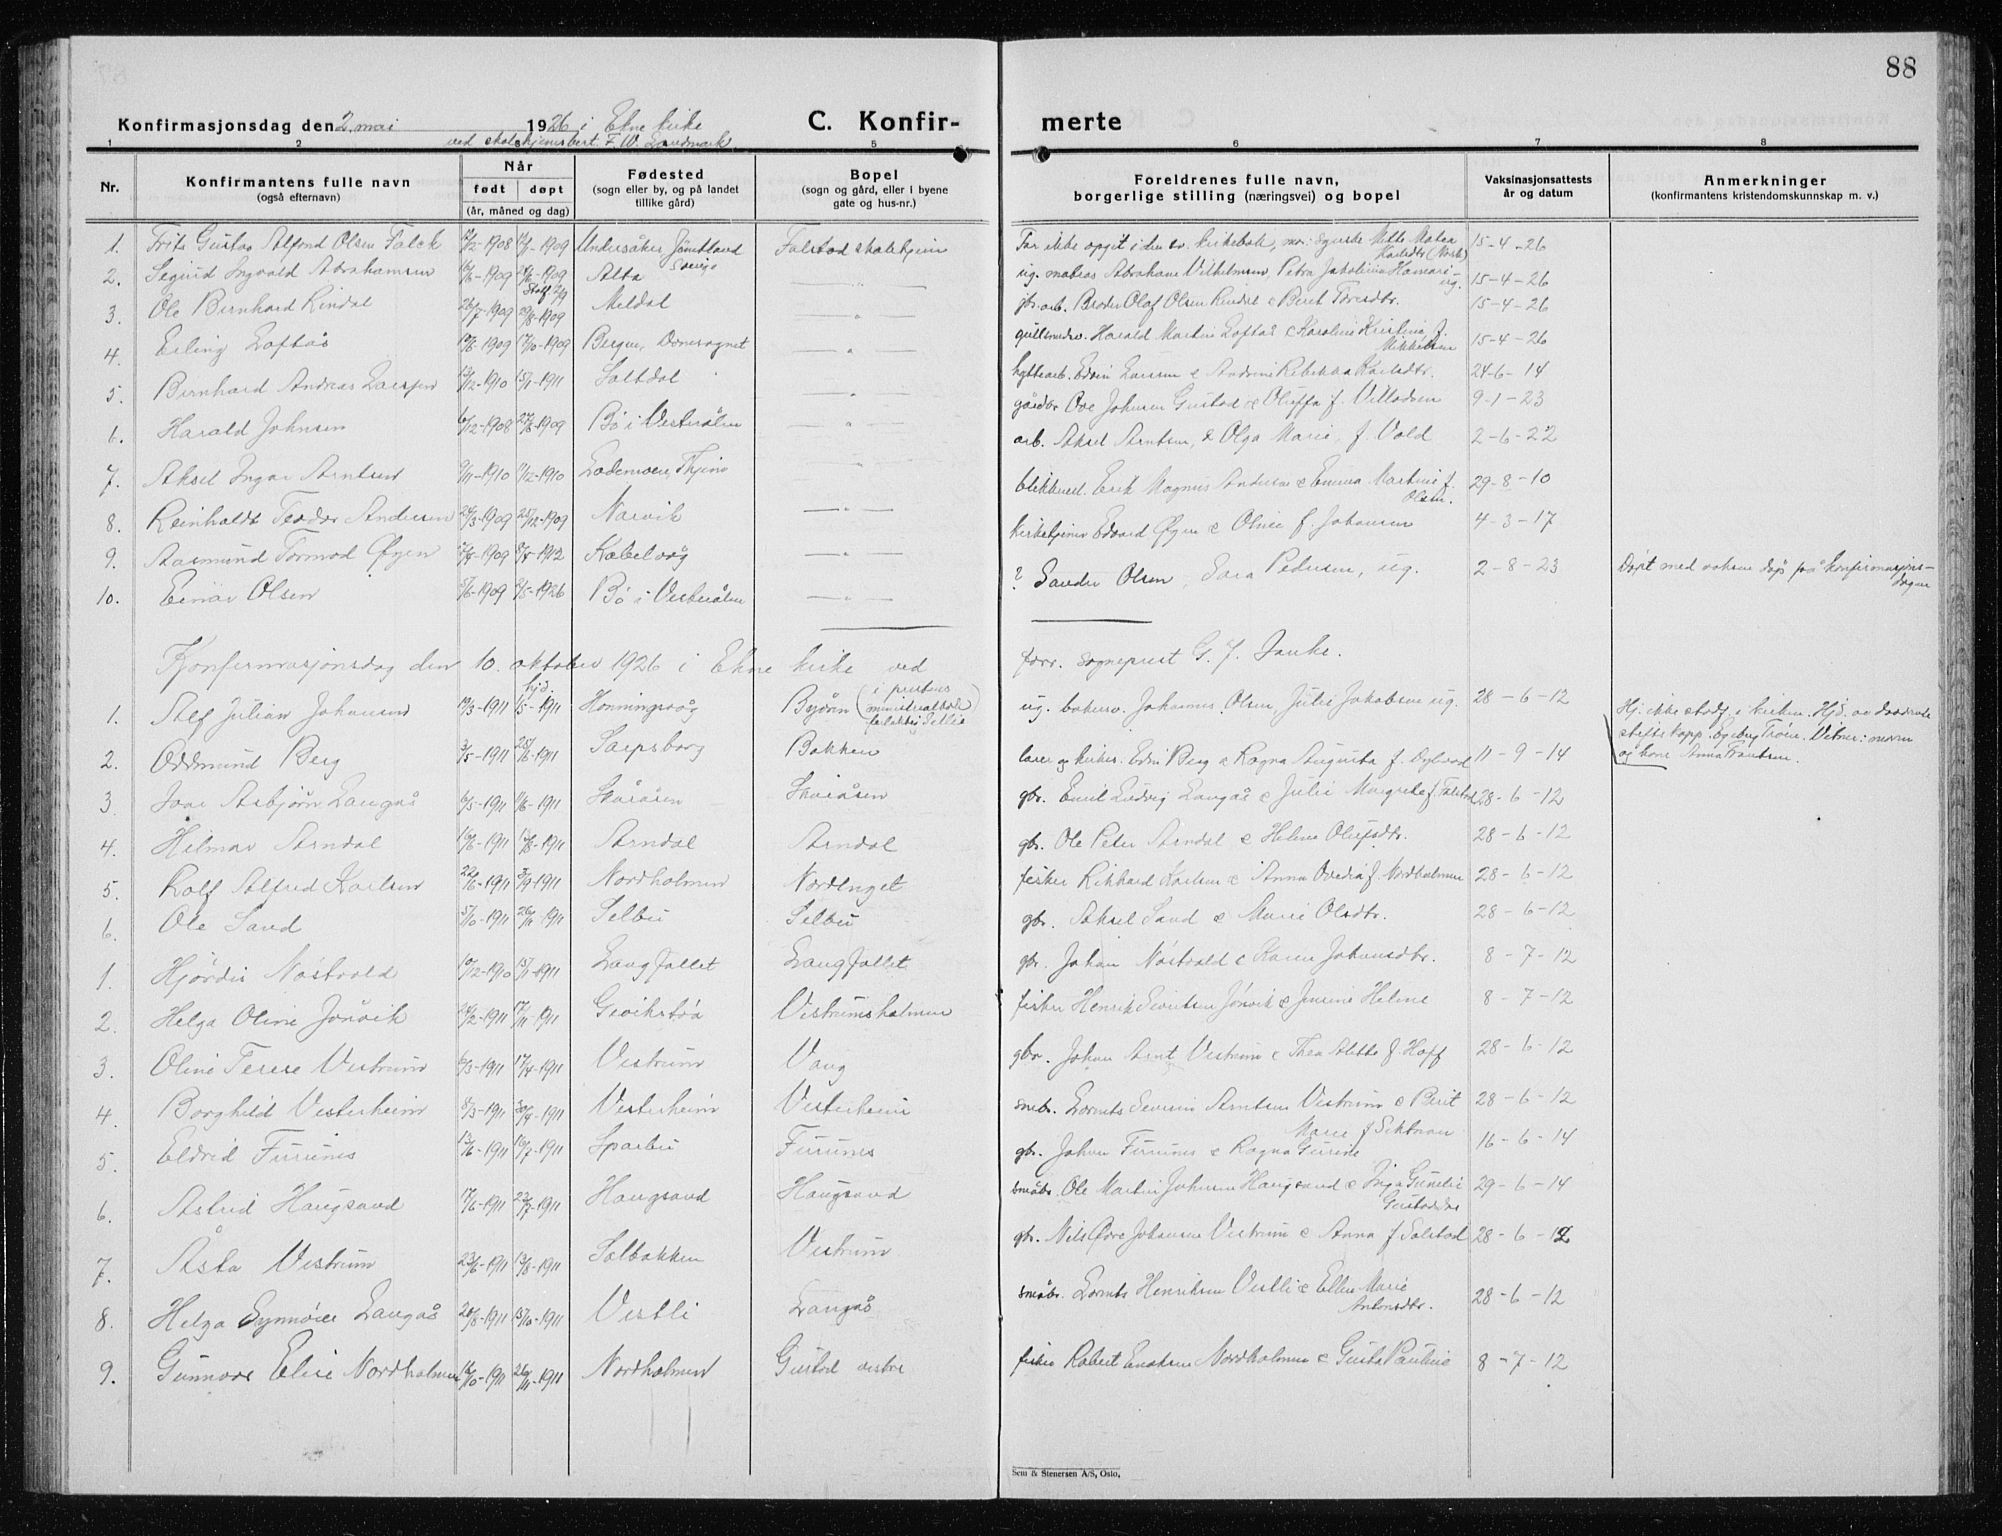 88
Konfirmasjonsdag den 2. mai 1926 i Ekne kirke
C. Konfir-
merte
ved skolehjemsbest. F. W. Landmark
1 2 3 5 6 7 8
Nr.
Konfirmantens fulle navn
(også efternavn)
Når
født døpt
(år, måned og dag)
Fødested
(sogn eller by, og på landet
tillike gård)
Bopel
(sogn og gård, eller i byene
gate og hus-nr.)
Foreldrenes fulle navn,
borgerlige stilling (næringsvei) og bopel
Vaksinasjonsattests
år og datum
Anmerkninger
(konfirmantens kristendomskunnskap m. v.)
1. Frits Gustav Alfond Olsen Falck -1908 -1909 Undersåker Jämtland Sverige Falstad skolehjem Far ikke opgit i den sv. kirkebok, mor: Mette Karlsdtr (Norsk) 15-4-26
2. Sigurd Ingvald Abrahamsen -1909 -1909 Alta — " — ug. matros Abraham Vilhelmsen, Petra Jakobine Hamari ug. 15-4-26
3. Ole Bernhard Rindal 26/7-1909 29/8-1909 Meldal — " — Olaf Olsen Rindal & Berit Toresdtr. 15-4-26
4. Erling Loftås -1909 17/10-1909 Bergen, Domsognet — " — gullsmedsv. Harald Martin Loftås & Karoline Kristine f. Mikkelsen 15-4-26
5. Bernhard Andreas Larssen -1910 15/1-1911 Saltdal — " — hyttearb. Edvin Larsen & Andrine Rebekka Karlsdtr. 24-6-14
6. Harald Johnsen 6/12-1908 -1909 Bø i Vesterålen — " — gårdbr Ove Johnsen Gustad & Oluffa f. Villadsen 9-1-23
7. Aksel Ingar Arntsen 9/11-1910 11/12-1910 Lademoen, Thjem — " — arb. Aksel Arntsen, & Olga Marie, f. Vold 2-6-22
8. Reinholdt Teodor Andersen -1909 25/12-1909 Narvik — " — blikkensl. Erik Magnus Andersen & Emma Martine f. Olsen. 29-8-10
9. Aasmund Tormod Øyen -1909 -1912 Kabelvåg — " — kirketjener Edvard Øyen & Oline f. Johansen 4-3-17
10. Einar Olsen 5/6-1909 2/5-1926 Bø i Vesterålen — " — ? Sander Olsen, Sara Pedersen, ug. 2-8-23 Døpt med voksen dåp på konfirmasjonsdagen
Konfirmasjonsdag den 10. oktober 1926 i Ekne kirke ved forr. sogneprest G. J.
1. Alf Julian Johansen 19/3-1911 hjd. 1/5-1911 Honningsvåg Byånn (i prestens ministerialbok ) ug. bakersv. Johannes Olsen, Julie Jakobsen ug. 28-6-12 Hj. ikke stadf. i kirken. Hjd. av daværende stiftskapp. Trøen. Vitner: moren og kone Anna Frantsen.
2. Oddmund Berg 3/5-1911 25/6-1911 Sarpsborg Bakken lærer og kirkes. Edvin Berg & Ragna Augusta f. 11-9-14
3 Ivar Asbjørn Langås 6/5-1911 11/6-1911 Skåråsen Skåråsen gbr. Emil Ludvig Langås & Julie Margrete f. Falstad 28-6-12
4. Helmar Arndal 16/6-1911 -1911 Arndal Arndal gbr. Ole Peter Arndal & Helene Olufsdtr. 28-6-12
5. Rolf Alfred Karlsen 22/6-1911 3/9-1911 Nordholmen Nordenget fisker Rikhard Karlsen & Anna Ovedia f. Nordholmen 28-6-12
6. Ole Sand 5/10-1911 26/11-1911 Selbu Selbu gbr. Aksel Sand & Marie Olsdtr. 28-6-12
1. Hjørdis Nøstvold 10/12-1910 15/1-1911 Langfallet Langfallet gbr. Johan Nøstvold & Karen Johansdtr. 8-7-12
2. Helga Oline Jørvik 24/2-1911 -1911 Vestrumsholmen fisker Henrik Sivertsen Jørvik & Jensine Helene 8-7-12
3. Oline Terese Vestrum 6/3-1911 17/4-1911 Vestrum Vang gbr. Johan Arnt Vestrum & Thea Alette f. Hoff 28-6-12
4. Borghild Vesterheim 8/3-1911 30/4-1911 Vesterheim Vesterheim småbr. Lornts Severin Arntsen Vestrum & Berit Marie f 28-6-12
5. Eldrid Furunes 13/6-1911 16/7-1911 Sparbu Furunes gbr. Johan Furunes & Ragna Gurine 16-6-14
6. Astrid Haugsand 17/6-1911 23/7-1911 Haugsand Haugsand småbr. Ole Martin Johnsen Haugsand & Inga Gunelie Gustavsdtr 29-6-14
7. Åsta Vestrum 23/6-1911 13/8-1911 Solbakken Vestrum gbr. Nils Ove Johansen Vestrum & Anna f Falstad 28-6-12
8. Helga Synnøve Langås 20/8-1911 15/10-1911 Vestli Langås småbr. Lornts Henriksen Vestli & Ellen Marie Antonsdtr. 28-6-12
9. Gunnvor Elise Nordholmen 16/10-1911 26/11-1911 Nordholmen Gustad vestre fisker Robert Enoksen Nordholmen & Gusta Pauline 8-7-12
Sem & Stenersen A/S, Oslo,